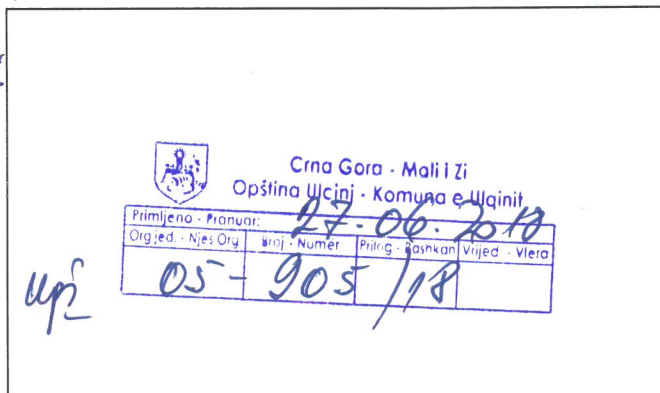 Crna Gora - Mali i Zi
Opština Ulcinj - Komuna e Ulqinit
Primljeno - Pranuar: 27.06.2018
Org jed. - Njes Org Broj - Numër Prilog - Bashkan Vrijed. - Vlera
upi 05 - 905 /18